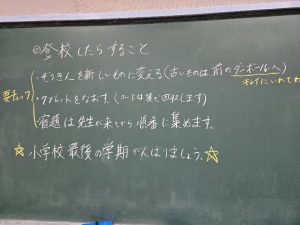 ①登校したらすること
要チェック
・ぞうきんを新しいものに変える(古いものは前のダンボールへ)
きれいにいれてね
・タブレットをなおす。(コードは後で回収します)
・宿題は先生が来てから順番に集めます。
☆小学校最後の学期がんばりましょう。☆